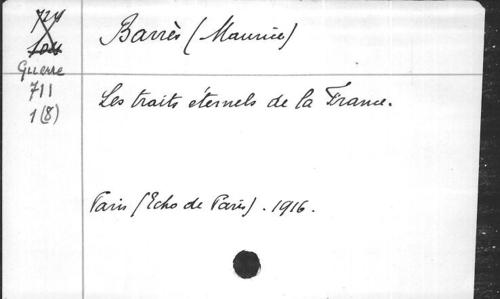 Barrès (Maurice)
Guerre
711
1(8)
Les traits éternels de la France.
Paris (Echo de Paris). 1916.